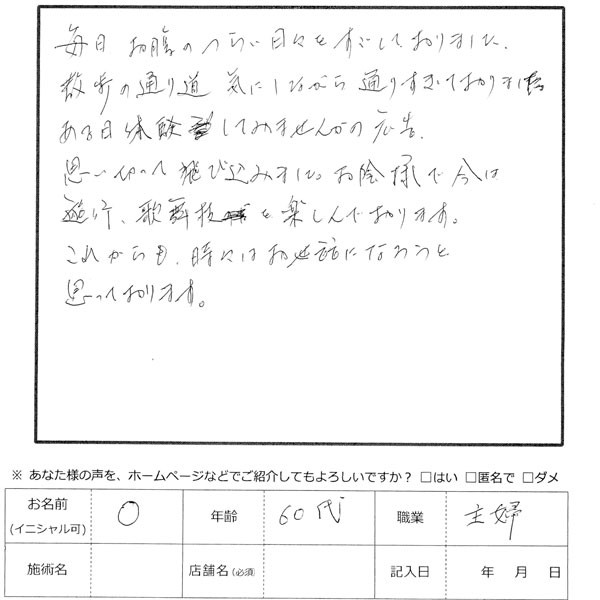 毎日 お腹のつらい日々をすごしておりました。
散歩の通り道 気にしながら 通りすぎておりました
ある日体験してみませんかの広告、
思い切って飛び込みました。お陰様で今は
旅行、歌舞伎を楽しんでおります。
これからも、時にはお世話になろうと
思っております。
※ あなた様の声を、ホームページなどでご紹介してもよろしいですか? □はい □匿名で □ダメ
お名前 (イニシャル可) O 年齢 60代 職業 主婦
施術名 店舗名(必須) 記入日 年 月 日